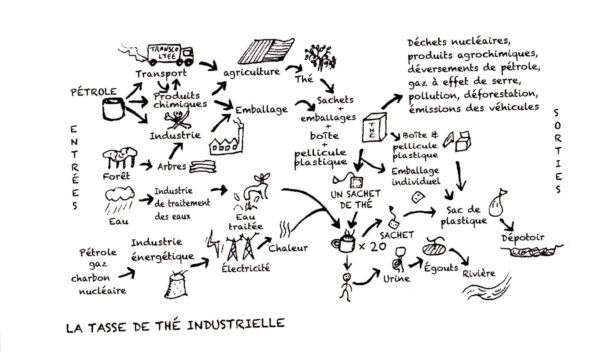 TRANSCO
LTEE
Transport
agriculture
Thé
Déchets nucléaires,
produits agrochimiques,
déversements de pétrole,
gaz à effet de serre,
pollution, déforestation,
émissions des véhicules
PÉTROLE
Produits
chimiques
Emballage
Industrie
Sachets
+
emballages
+
boîte
+
pellicule
plastique
THÉ
Boîte &
pellicule
plastique
Emballage
individuel
ENTRÉES
SORTIES
Forêt
Arbres
Eau
Industrie
de traitement
des eaux
Eau
traitée
UN SACHET
DE THÉ
SACHET
x 20
Sac de
plastique
Dépotoir
Pétrole
gaz
charbon
nucléaire
Industrie
énergétique
Électricité
Chaleur
Urine
Égouts
Rivière
LA TASSE DE THÉ INDUSTRIELLE